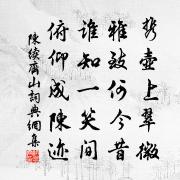 携壺上翠微
雅致何今昔
誰知一笑间
俯仰成陳迹
陳續廣山詞典網集